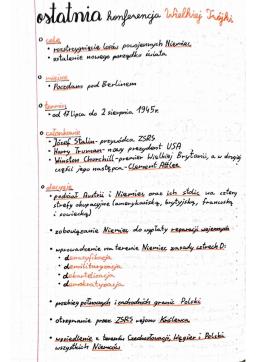 ostatnia konferencja Wielkiej Trójki
cele
• rozstrzygnięcie losów powojennych Niemiec
• ustalenie nowego porządku świata
miejsce
• Poczdam pod Berlinem
termin
• od 17 lipca do 2 sierpnia 1945r.
członkowie
• Józef Stalin - przywódca ZSRS
• Harry Truman - nowy prezydent USA
• Winston Churchill - premier Wielkiej Brytanii, a w drugiej
części jego następca - Clement Attlee
decyzje
• podział Austrii i Niemiec oraz ich stolic na cztery
strefy okupacyjne (amerykańską, brytyjską, francuską
i sowiecką)
• zobowiązanie Niemiec do wypłaty reparacji wojennych
• wprowadzenie na terenie Niemiec zasady czterech D:
• denazyfikacja
• demilitaryzacja
• dekartelizacja
• demokratyzacja
• przebieg północnych i zachodnich granic Polski
• otrzymanie przez ZSRS rejonu Królewca
• wysiedlenie z terenów Czechosłowacji, Węgier i Polski
wszystkich Niemców